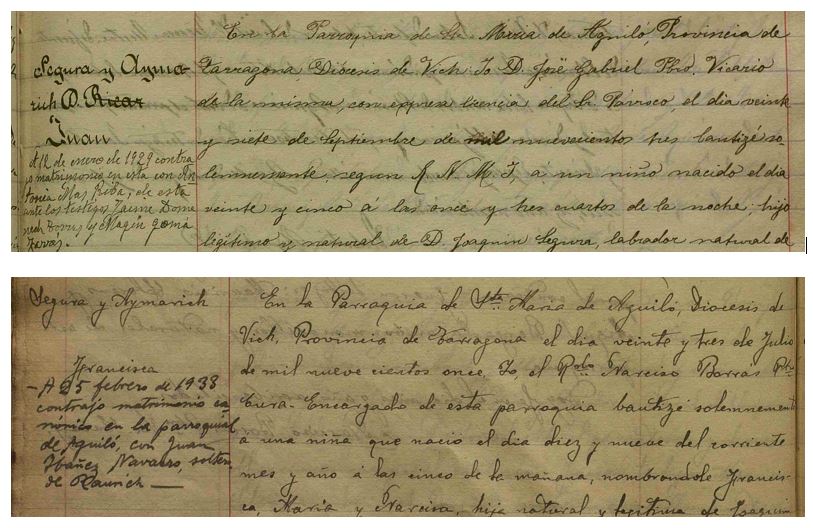 En la Parroquia de Sta Maria de Aguiló, Provincia de
Segura y Ayma-
rich D.
Juan
Tarragona, Diócesis de Vich Yo D. José Gabriel Pbro. Vicario
de la misma, con expresa licencia del Sr. Párroco, el dia veinte
y siete de Septiembre de mil nuevecientos tres bautizé so
lemnemente, segun R. N. M. I, á un niño nacido el dia
veinte y cinco á las once y tres cuartos de la noche; hijo
legítimo y natural de D. Joaquin Segura, labrador natural de
A 12 de enero de 1929 contra
jo matrimonio en esta con An
tonia Mas Riba, de esta
ante los testigos Jaime Dome
nech y Magin
Segura y Aymarich
Francisca
En la Parroquia de Sta. Maria de Aguiló, Diócesis de
Vich, Provincia de Tarragona el dia veinte y tres de Julio
de mil nueve cientos once, Yo, el Rdo Narciso Borrás Pbro
Cura-Encargado de esta parroquia bautizé solemnemente
a una niña que nació el dia diez y nueve del corriente
mes y año á las cinco de la mañana, nombrándole Francis-
ca, Maria y Narcisa, hija natural y legítima de Joaquin
- A 25 febrero de 1938
contrajo matrimonio ca-
nónico en la parroquial
de Aguiló, con Juan
Ibáñez Navarro, soltero
de Raurich —